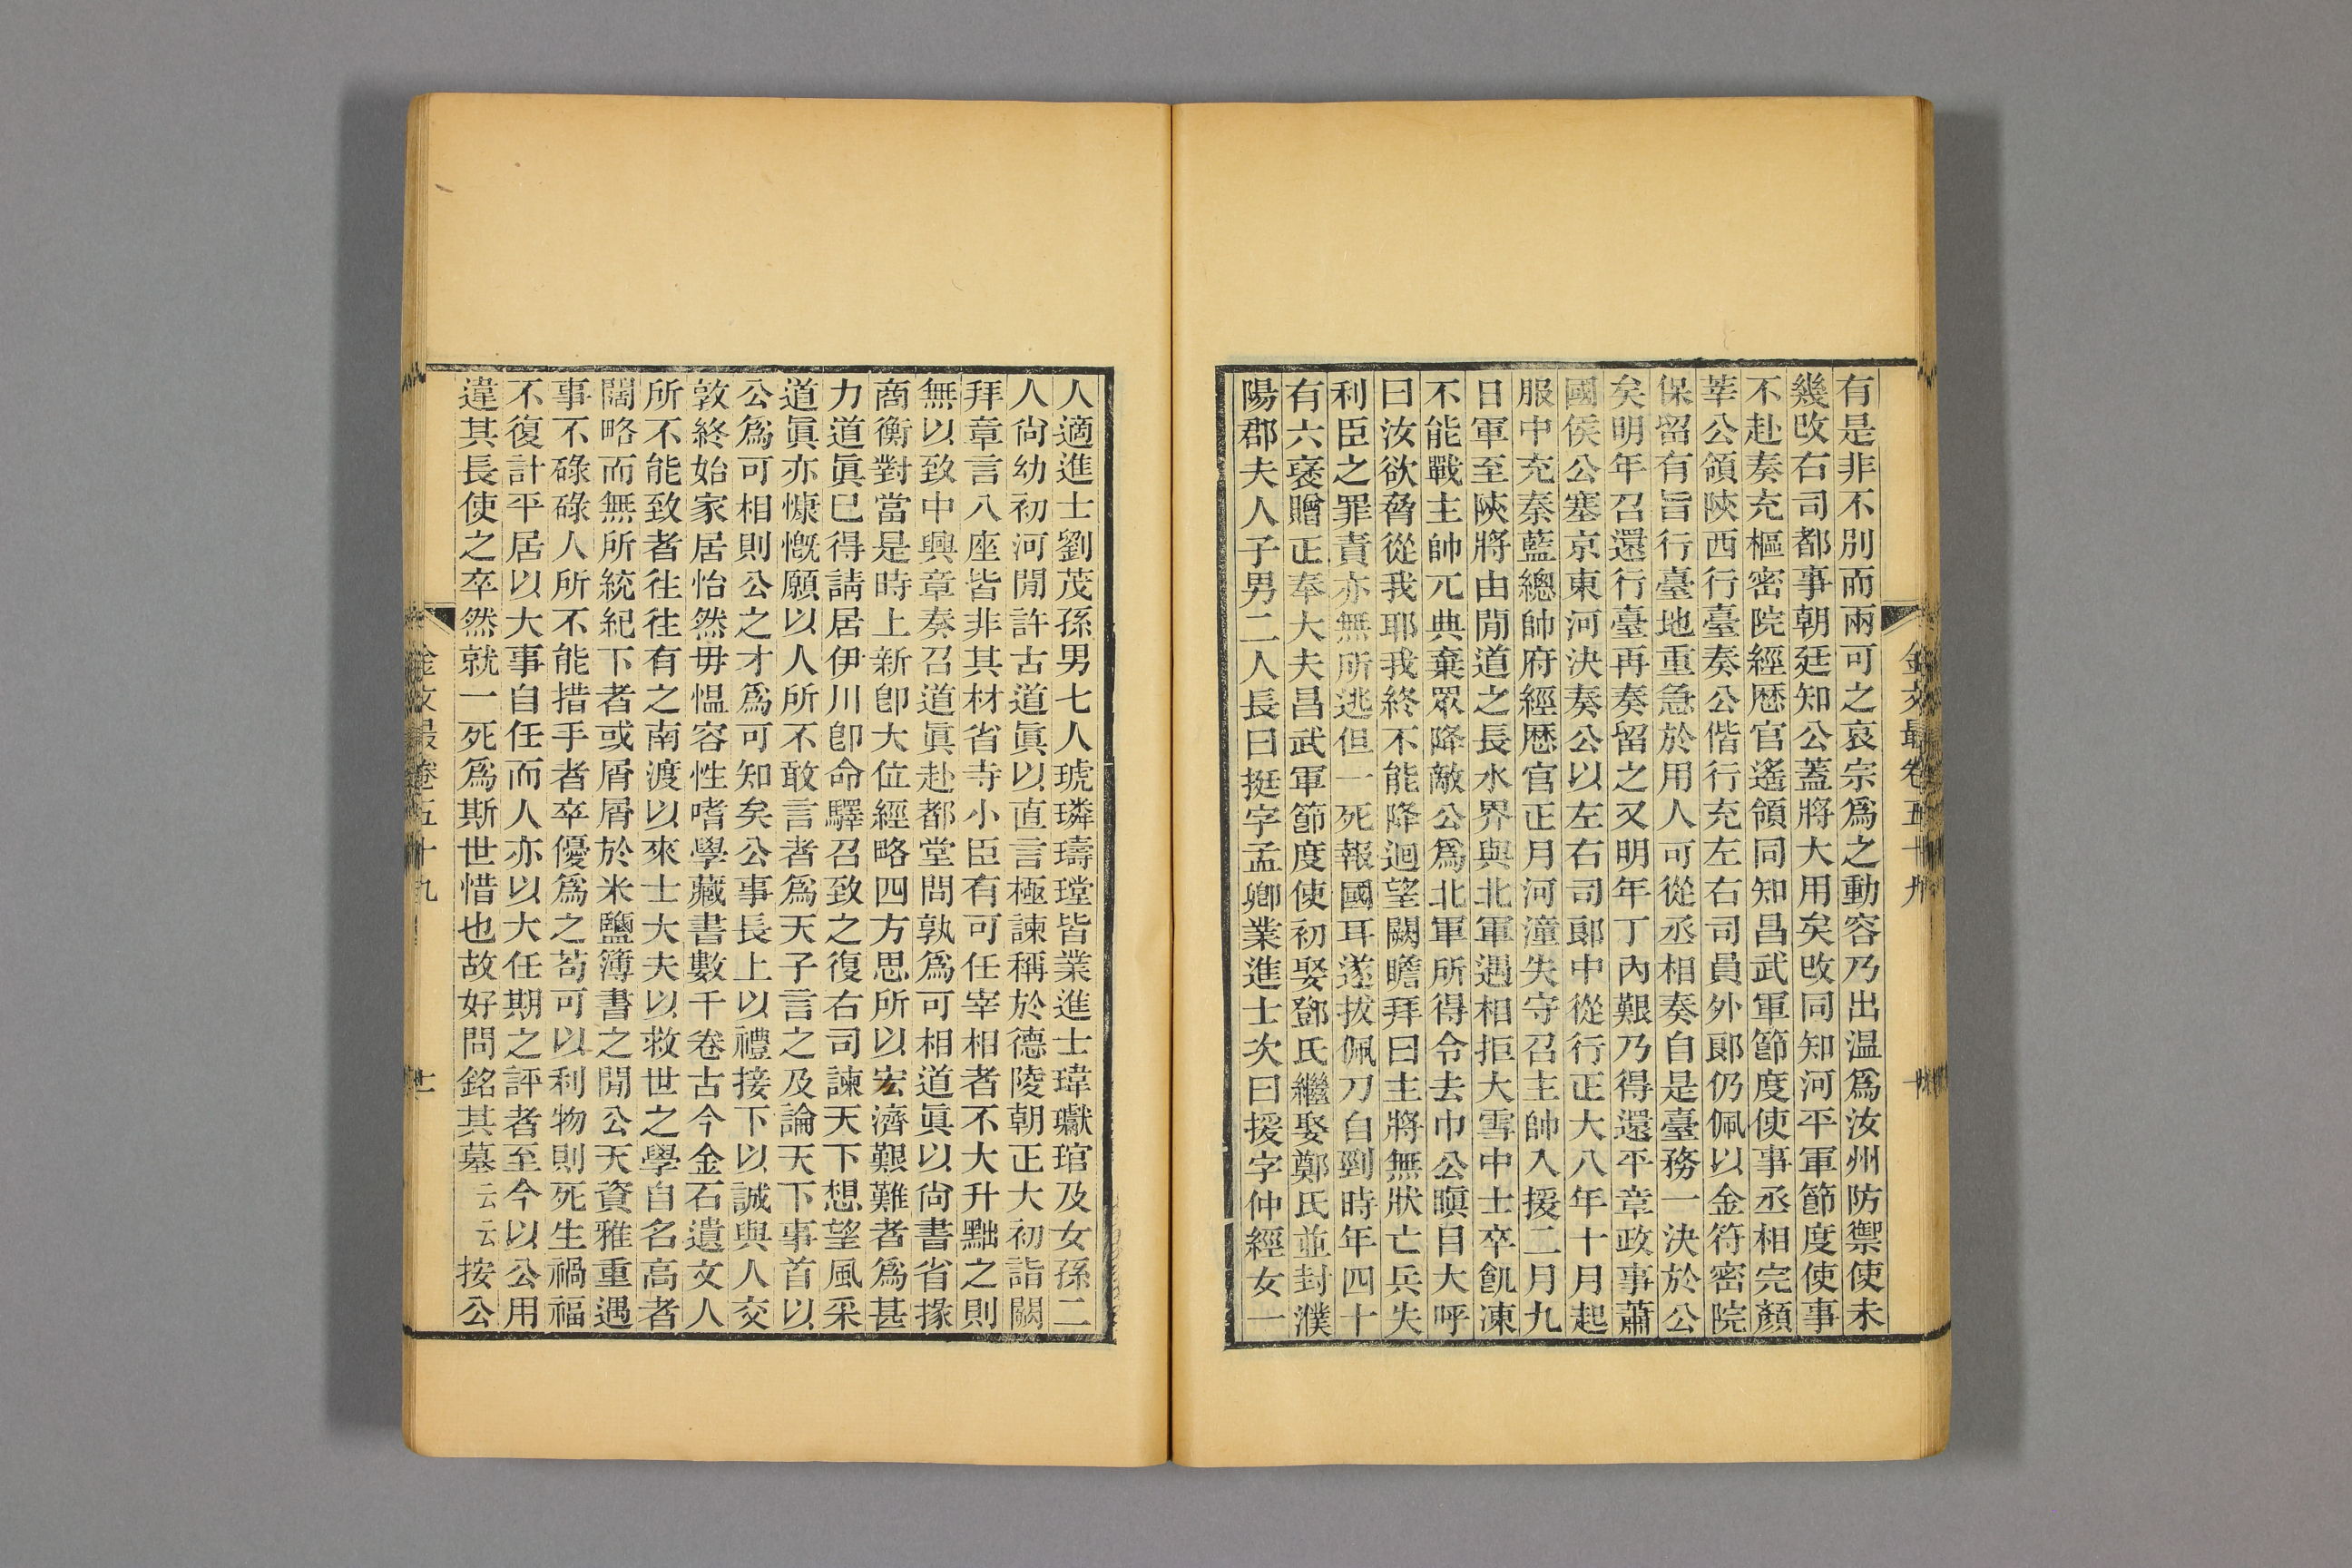 有是非不別而兩可之哀宗爲之動容乃出温爲汝州防禦使未
幾改右司都事朝廷知公蓋將大用矣改同知河平軍節度使事
不赴奏充樞密院經歷官遙領同知昌武軍節度使事丞相完顏
莘公領陝西行臺奏公偕行充左右司員外郞仍佩以金符密院
保留有旨行臺地重急於用人可從丞相奏自是臺務一決於公
矣明年召還行臺再奏留之又明年丁內艱乃得還平章政事蕭
國侯公塞京東河決奏公以左右司郞中從行正大八年十月起
服中充秦藍總帥府經歷官正月河潼失守召主帥入援二月九
日軍至陝將由閒道之長水界與北軍遇相拒大雪中士卒飢凍
不能戰主帥兀典棄眾降敵公爲北軍所得令去巾公瞋目大呼
曰汝欲脅從我耶我終不能降迴望闕瞻拜曰主將無狀亡兵失
利臣之罪責亦無所逃但一死報國耳遂拔佩刀自剄時年四十
有六褒贈正奉大夫昌武軍節度使初娶鄧氏繼娶鄭氏並封濮
陽郡夫人子男二人長曰挺字孟卿業進士次曰援字仲經女一
金文最卷五十九
人適進士劉茂孫男七人琥璘璹瑝皆業進士瑋瓛琯及女孫二
人尙幼初河閒許古道眞以直言極諫稱於德陵朝正大初詣闕
拜章言八座皆非其材省寺小臣有可任宰相者不大升黜之則
無以致中興章奏召道眞赴都堂問孰爲可相道眞以尙書省掾
商衡對當是時上新卽大位經略四方思所以宏濟艱難者爲甚
力道眞已得請居伊川卽命驛召致之復右司諫天下想望風采
道眞亦慷慨願以人所不敢言者爲天子言之及論天下事首以
公爲可相則公之才爲可知矣公事長上以禮接下以誠與人交
敦終始家居怡然毋慍容性嗜學藏書數千卷古今金石遺文人
所不能致者往往有之南渡以來士大夫以救世之學自名高者
闊略而無所統紀下者或屑屑於米鹽簿書之閒公天資雅重遇
事不碌碌人所不能措手者卒優爲之苟可以利物則死生禍福
不復計平居以大事自任而人亦以大任期之評者至今以公用
違其長使之卒然就一死爲斯世惜也故好問銘其墓云云按公
金文最卷五十九